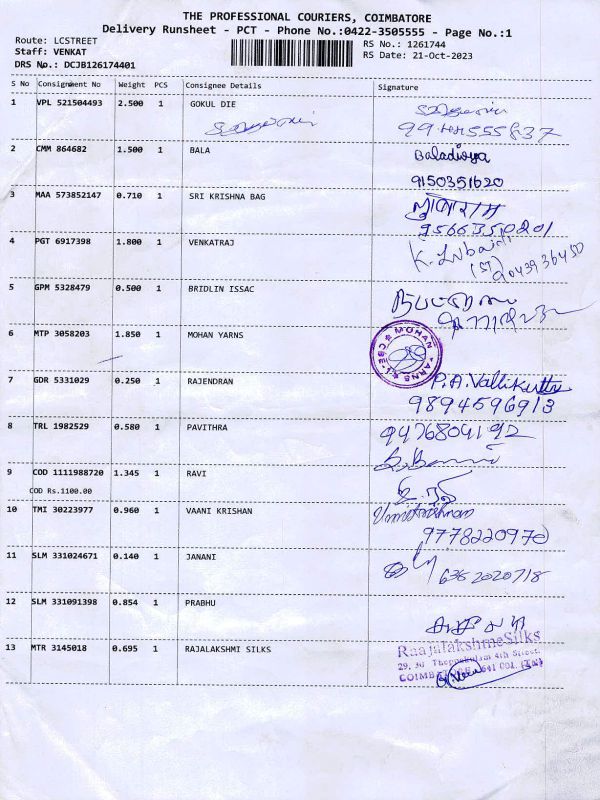 THE PROFESSIONAL COURIERS, COIMBATORE
Delivery Runsheet - PCT - Phone No.:0422-3505555 - Page No.:1
Route: LCSTREET
RS No.: 1261744
Staff: VENKAT
RS Date: 21-Oct-2023
DRS No.: DCJB126174401
S No Consignment No Weight PCS Consignee Details Signature
1 VPL 521504493 2.500 1 GOKUL DIE
2 CMM 864682 1.500 1 BALA Baladivya
9150351620
3 MAA 573852147 0.710 1 SRI KRISHNA BAG
9566350201
4 PGT 6917398 1.800 1 VENKATRAJ
(ST) 9043936450
5 GPM 5328479 0.500 1 BRIDLIN ISSAC
6 MTP 3058203 1.850 1 MOHAN YARNS MOHAN YARNS CBE-1
7 GDR 5331029 0.250 1 RAJENDRAN P.A. Vallikutty
9894596913
8 TRL 1982529 0.580 1 PAVITHRA 9476804192
9 COD 1111988720 1.345 1 RAVI
COD Rs.1100.00
10 TMI 30223977 0.960 1 VAANI KRISHAN
9778220970
11 SLM 331024671 0.140 1 JANANI 6362020718
12 SLM 331091398 0.854 1 PRABHU
13 MTR 3145018 0.695 1 RAJALAKSHMI SILKS RaajalakshmeSilks
29, 30 Theppakulam 4th Street,
COIMBATORE-641 001. (TN)